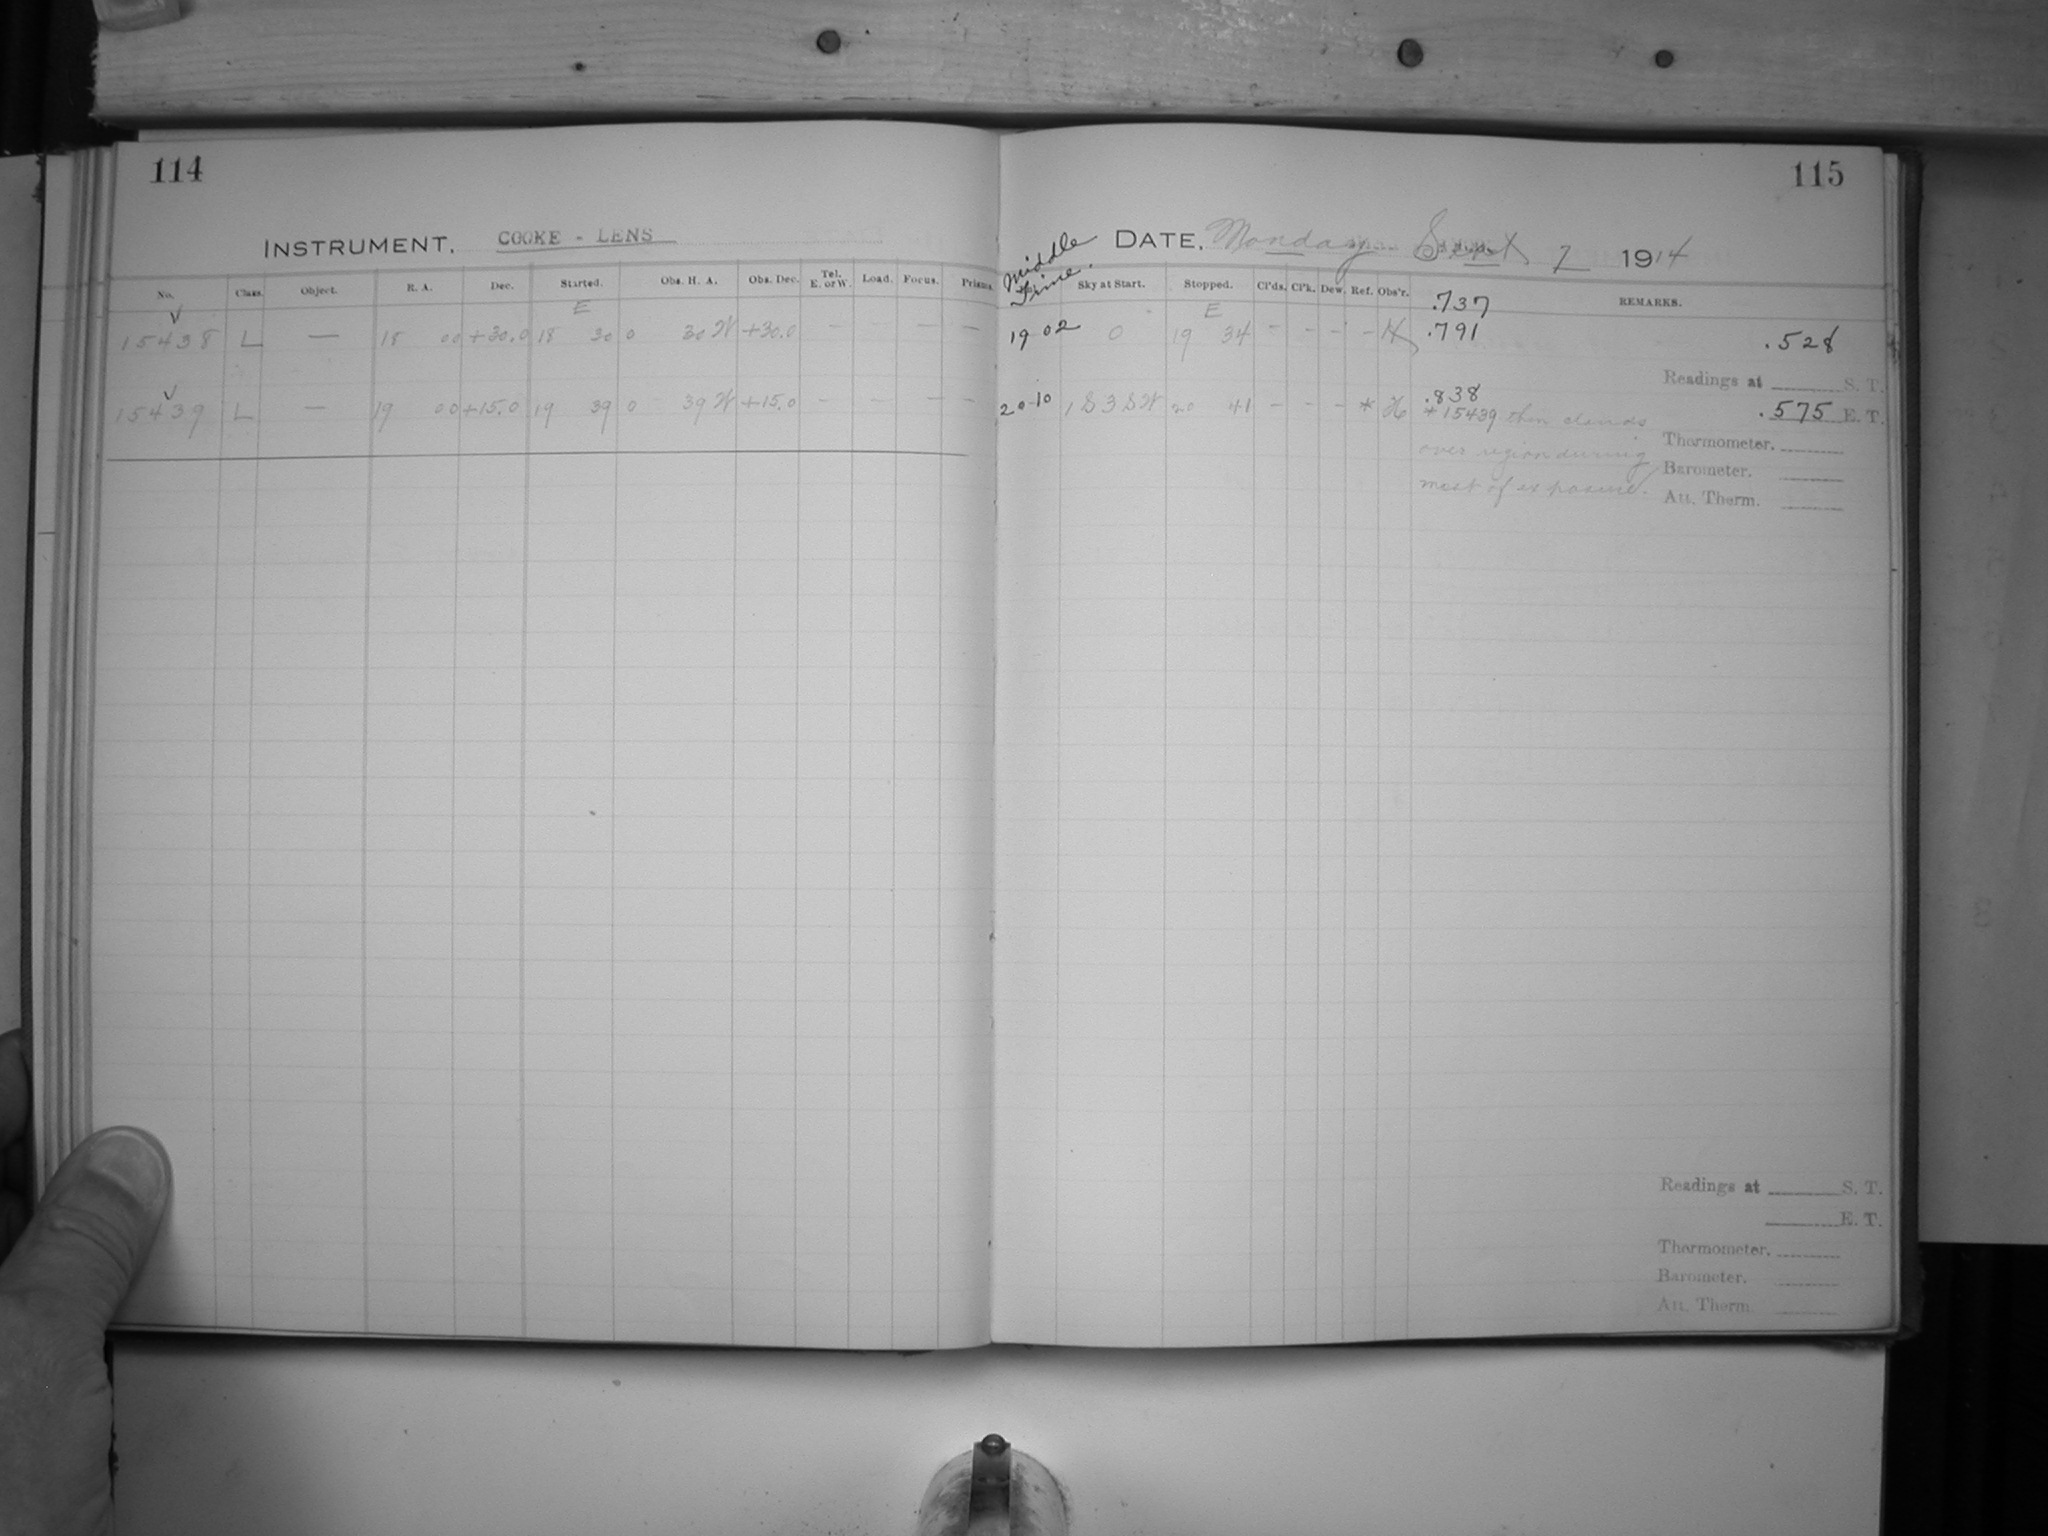 114
INSTRUMENT. COOKE - LENS
No. Class. Object. R. A. Dec. Started. Obs. H. A. Obs. Dec. Tel. E. or W. Load. Focus. Prisms.
E
15438 L — 18 00 +30.0 18 30 0 30 W +30.0 — — —
15439 L — 19 00 +15.0 19 39 0 39 W +15.0 – – — –
115
DATE. Monday Sept 7 1914
Middle Time.
Sky at Start. Stopped. Cl'ds. Cl'k. Dew. Ref. Obs'r. REMARKS.
.737
E
19 02 0 19 34 – – – – H .791 .528
Readings at S. T.
.838
20 10 1 S 3 SW 20 41 – – – * H * 15439 thin clouds .575 E. T.
over region during Thermometer.
most of exposure. Barometer.
Att. Therm.
Readings at S. T.
E. T.
Thermometer.
Barometer.
Att. Therm.